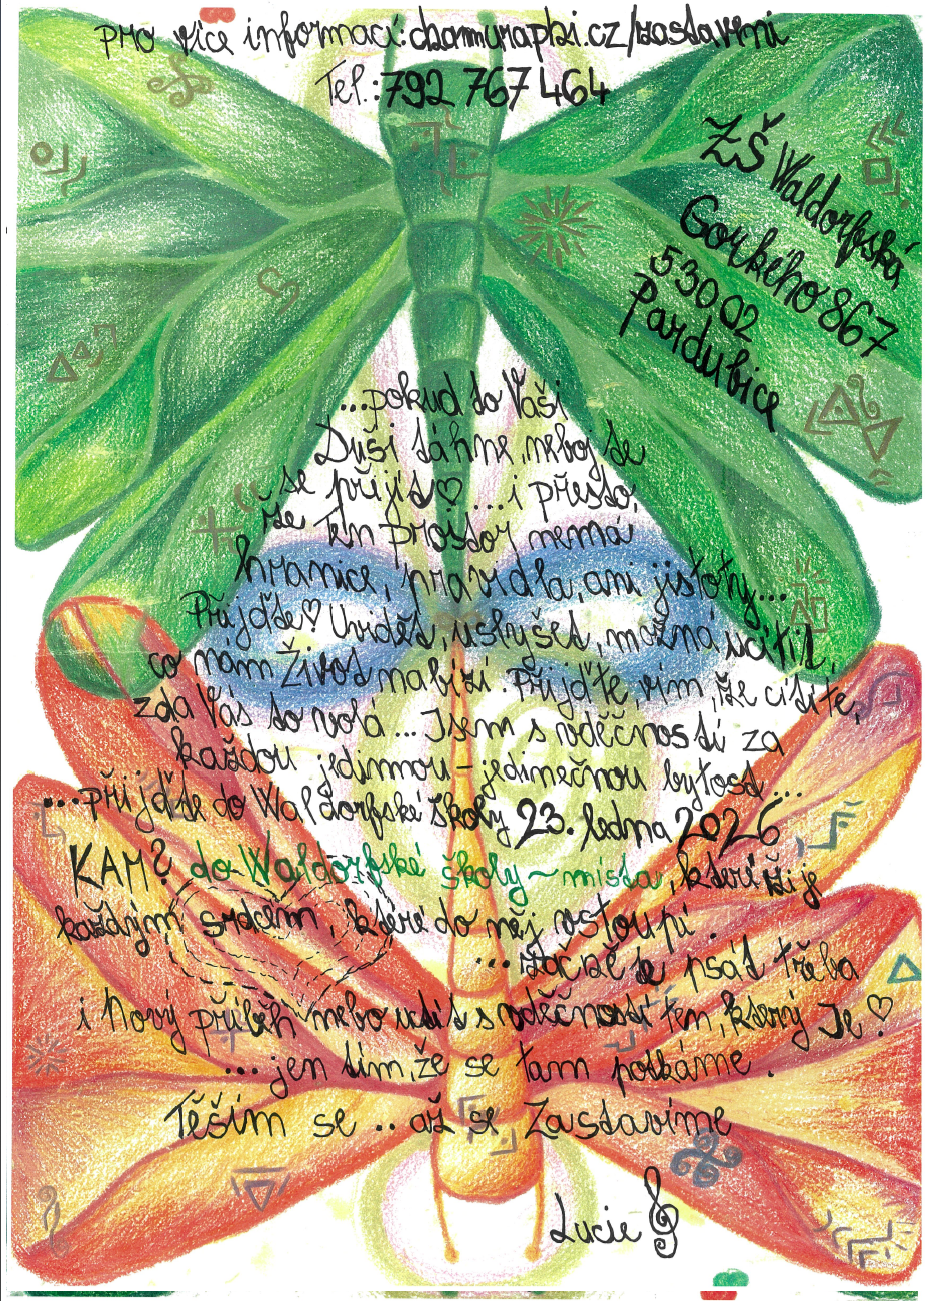 pro více informací: chammurapbi.cz/zastavení
Tel.: 792 767 464
ZŠ Waldorfská,
Gorkého 867
530 02
Pardubice
...pokud to Vaši
Duši táhne, nebojte
se přijít♡... i přesto,
že Ten prostor nemá
hranice, pravidla, ani jistoty...
Přijďte♡ Uvidět, uslyšet, možná ucítit,
co nám Život nabízí. Přijďte, vím, že cítíte,
zda Vás to volá... Jsem s vděčností za
každou jedinnou - jedinečnou bytost...
...přijďte do Waldorfské školy 23. ledna 2026
KAM? do Waldorfské školy ~ místa, které žije
každým srdcem, které do něj vstoupí.
...začněte psát třeba
i Nový příběh nebo udít s vděčností ten, který Je♡
... jen tím, že se tam potkáme.
Těším se .. až se Zastavíme
Lucie